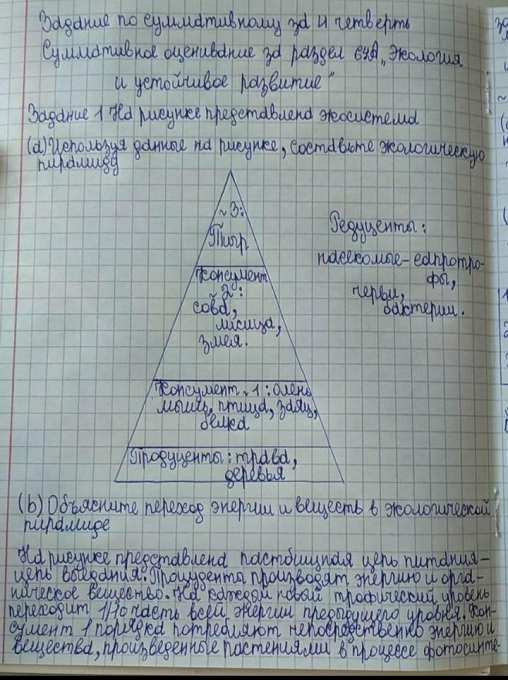 Задание по суммативному за 4 четверть
Суммативное оценивание за раздел 6.4А „Экология
и устойчивое развитие"
Задание 1 На рисунке представлена экосистема
(а) Используя данные на рисунке, составьте экологическую
пирамиду
~3:
Тигр
Консумент
~2:
сова,
лисица,
змея.
Консумент ~1: олень
мышь, птица, заяц,
белка
Продуценты: трава,
деревья
Редуценты:
насекомые-сапротро-
фы,
черви,
бактерии.
(b) Объясните переход энергии и веществ в экологической
пирамиде
На рисунке представлена пастбищная цепь питания-
цепь выедания. Продуценты производят энергию и орга-
ническое вещество. На каждый новый трофический уровень
переходит 1/10 часть всей энергии предыдущего уровня. Кон-
сумент 1 порядка потребляют непосредственно энергию и
вещества, произведенные растениями в процессе фотосинте-